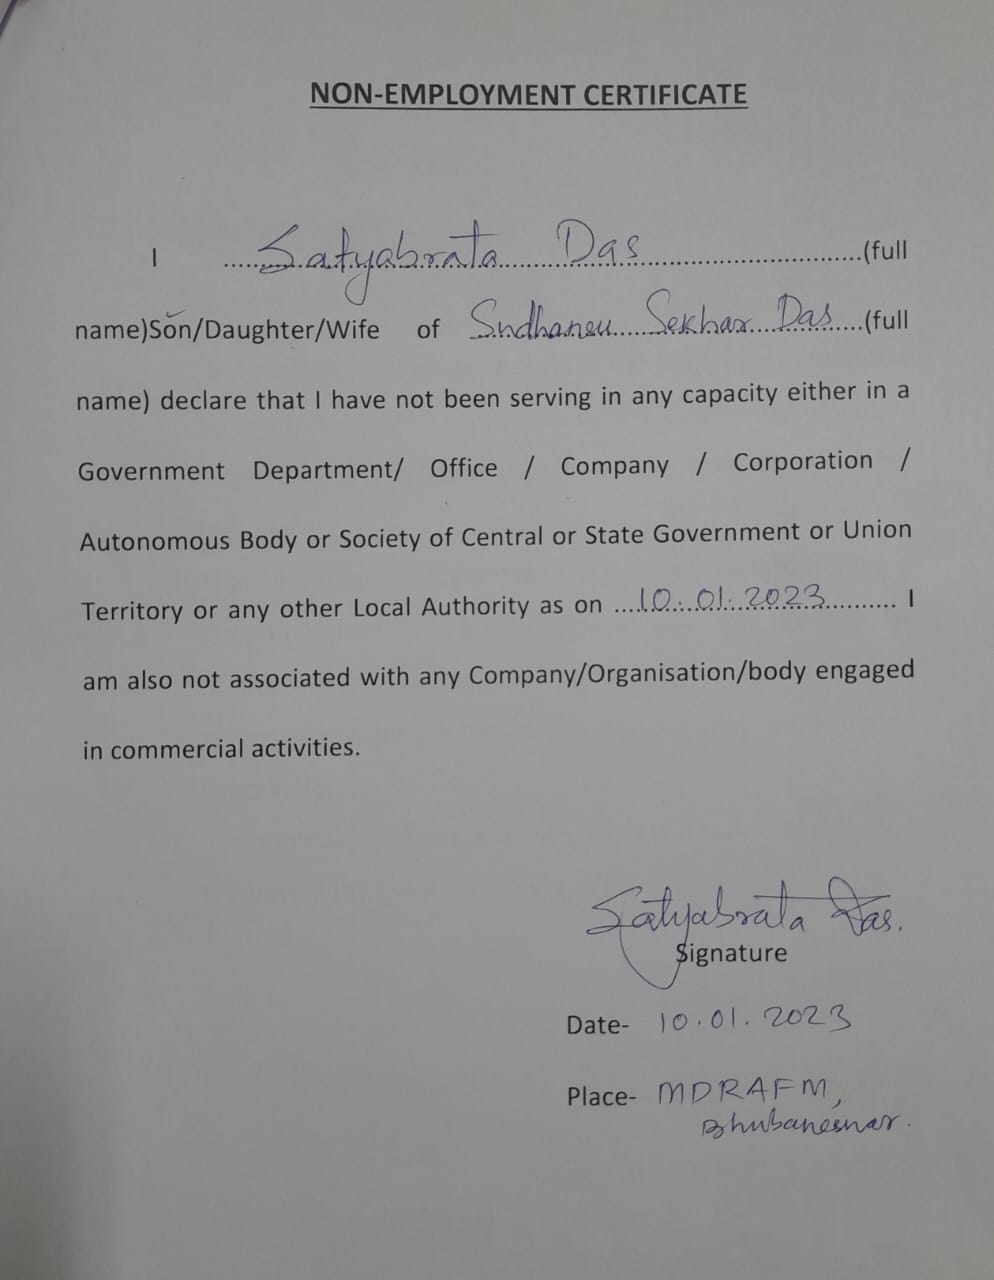 NON-EMPLOYMENT CERTIFICATE
I ......Satyabrata Das......(full
name)Son/Daughter/Wife of Sudhansu Sekhar Das....(full
name) declare that I have not been serving in any capacity either in a
Government Department/ Office / Company / Corporation /
Autonomous Body or Society of Central or State Government or Union
Territory or any other Local Authority as on ....10.01.2023.......... I
am also not associated with any Company/Organisation/body engaged
in commercial activities.
Satyabrata Das.
Signature
Date- 10.01.2023
Place- MDRAFM,
Bhubaneswar.